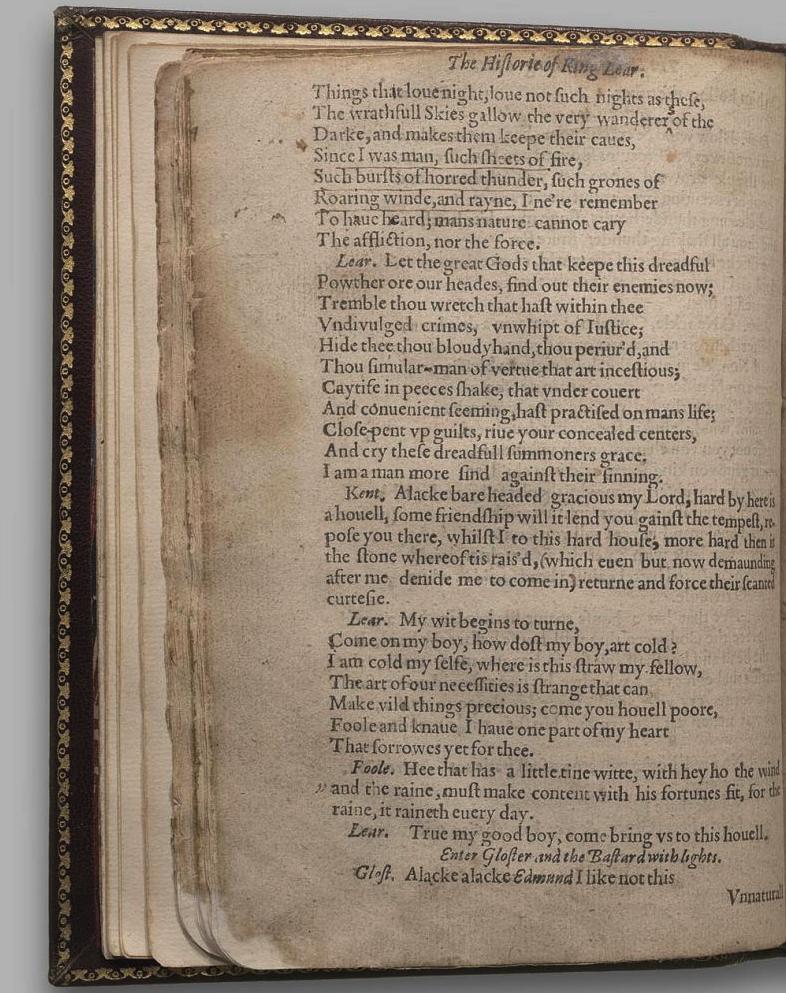 The Hiſtorie of King Lear.
Things that loue night, loue not ſuch nights as theſe,
The wrathfull Skies gallow the very wanderer of the
Darke, and makes them keepe their caues,
Since I was man, ſuch ſheets of fire,
Such burſts of horred thunder, ſuch grones of
Roaring winde, and rayne, I ne're remember
To haue heard; mans nature cannot cary
The affliction, nor the force.
Lear. Let the great Gods that keepe this dreadful
Powther ore our heades, find out their enemies now;
Tremble thou wretch that haſt within thee
Vndivulged crimes, vnwhipt of Iuſtice;
Hide thee thou bloudy hand, thou periur'd, and
Thou ſimular-man of vertue that art inceſtious;
Caytife in peeces ſhake, that vnder couert
And conuenient ſeeming, haſt practiſed on mans life;
Cloſe-pent vp guilts, riue your concealed centers,
And cry theſe dreadfull ſummoners grace.
I am a man more ſind againſt their ſinning.
Kent. Alacke bare headed gracious my Lord, hard by here is
a houell, ſome friendſhip will it lend you gainſt the tempeſt, re-
poſe you there, whilſt I to this hard houſe, more hard then is
the ſtone whereof tis rais'd, (which euen but now demaunding
after me denide me to come in) returne and force their ſcanted
curteſie.
Lear. My wit begins to turne,
Come on my boy, how doſt my boy, art cold?
I am cold my ſelfe, where is this ſtraw my fellow,
The art of our neceſſities is ſtrange that can
Make vild things precious; come you houell poore,
Foole and knaue I haue one part of my heart
That ſorrowes yet for thee.
Foole. Hee that has a little tine witte, with hey ho the wind
and the raine, muſt make content with his fortunes fit, for the
raine, it raineth euery day.
Lear. True my good boy, come bring vs to this houell.
Enter Gloſter and the Baſtard with lights.
Gloſt. Alacke alacke Edmund I like not this
Vnnaturall